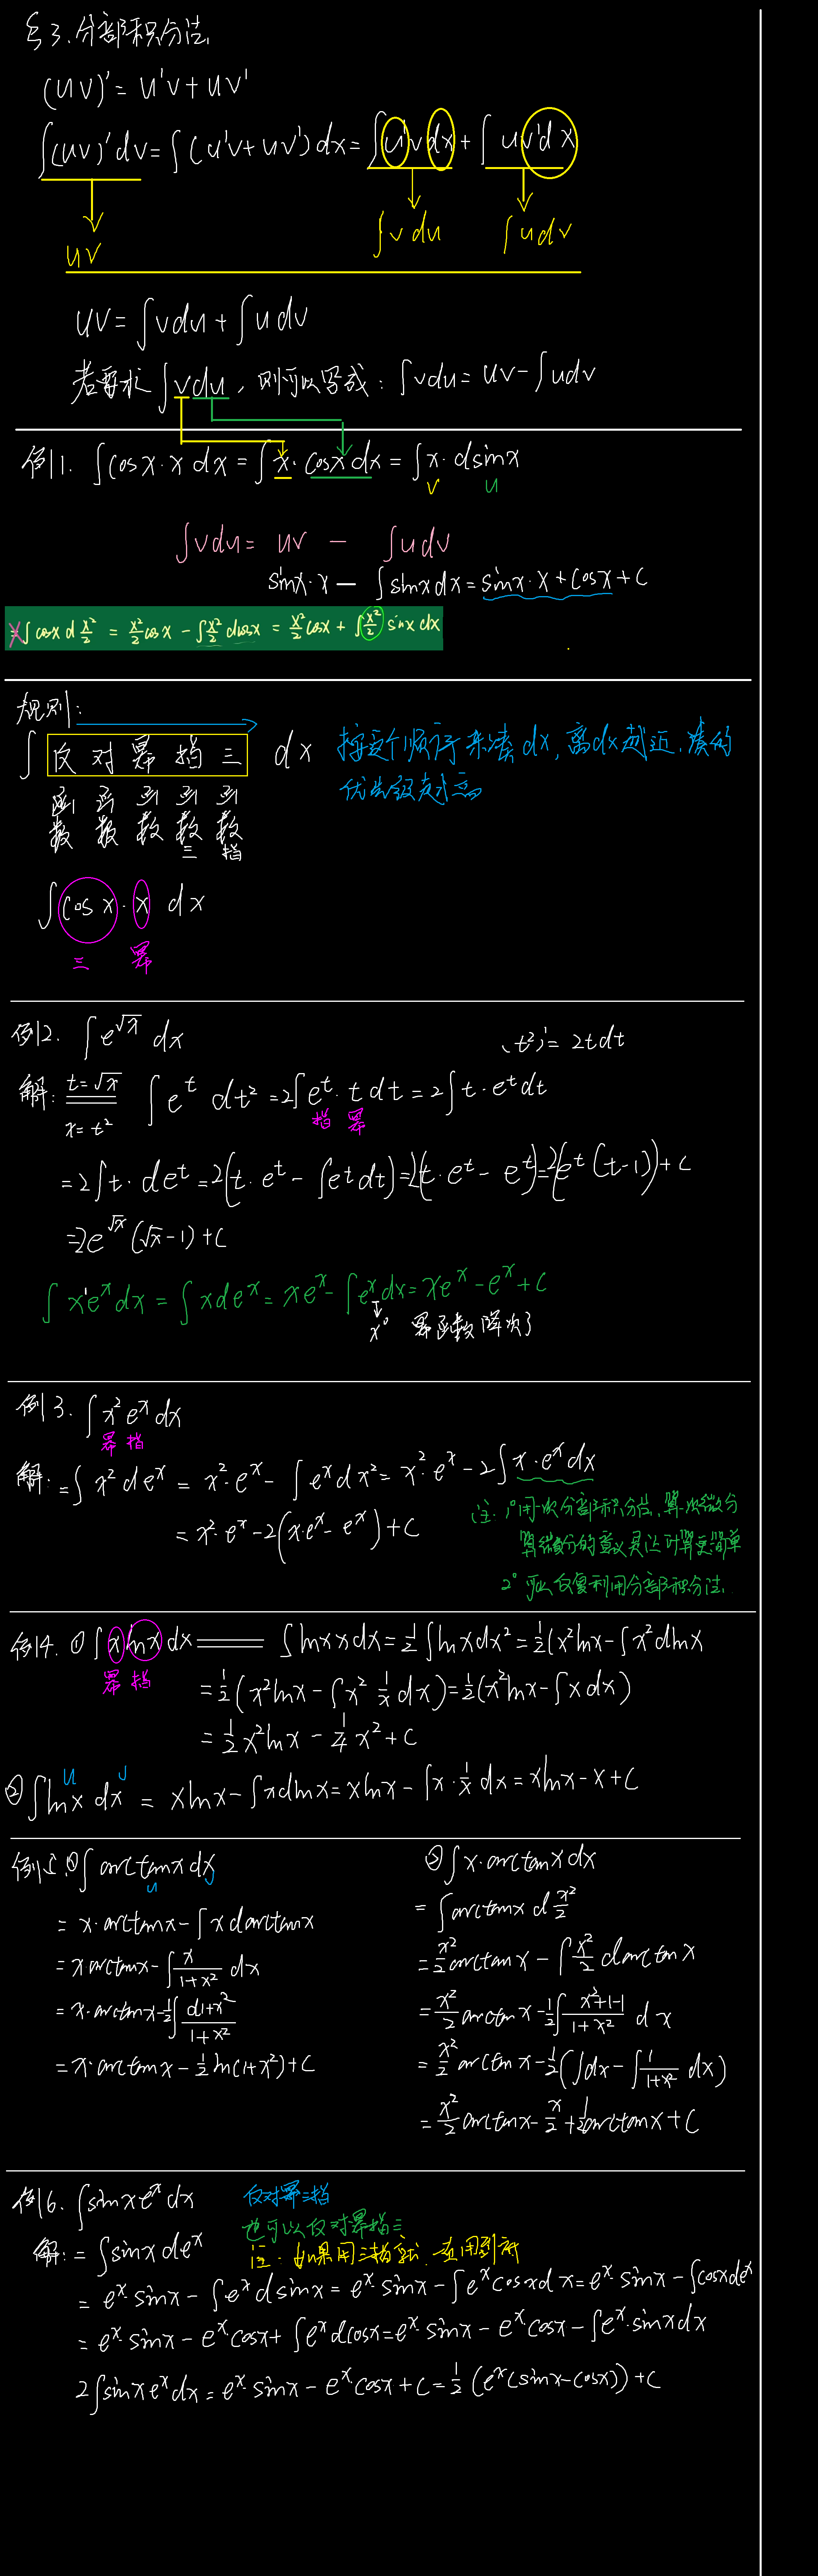 §3.分部积分法
(uv)'= u'v+uv'
∫(uv)'dv=∫(u'v+uv')dx=∫u'vdx+∫uv'dx
uv ∫vdu ∫udv
uv=∫vdu+∫udv
若要求∫vdu,则可以写成:∫vdu=uv-∫udv
例1. ∫cosx·x dx=∫x·cosxdx=∫x·dsinx
v u
∫vdu= uv - ∫udv
sinx·x-∫sinxdx=sinx·x+cosx+C
X∫cosx d x²/2 = x²/2 cosx -∫x²/2 dcosx = x²/2 cosx + ∫x²/2 sinx dx
规则:
∫ 反 对 幂 指 三 dx 按这个顺序来凑dx,离dx越近,凑的
函 函 函 函 函 优先级越高
数 数 数 数 数
三 指
∫cosx·x dx
三 幂
例2. ∫e^√x dx (t²)'= 2tdt
解: t=√x ∫e^t dt²=2∫e^t·t dt=2∫t·e^t dt
x=t² 指 幂
=2∫t·de^t=2(t·e^t-∫e^t dt)=2(t·e^t-e^t)=2(e^t(t-1))+C
=2e^√x(√x-1)+C
∫x¹e^x dx=∫xde^x=xe^x-∫e^x dx=xe^x-e^x+C
x⁰ 幂函数降次了
例3. ∫x²e^x dx
幂 指
解: =∫x²de^x = x²·e^x-∫e^x dx²=x²·e^x-2∫x·e^x dx
= x²·e^x-2(x·e^x-e^x)+C
注. 1°用一次分部积分法,算一次微分
算微分的意义是让计算更简单
2°可以反复利用分部积分法.
例4. ①∫xlnxdx ═══ ∫lnx x dx=1/2∫lnxdx²=1/2(x²lnx-∫x²dlnx
幂 指
=1/2(x²lnx-∫x² 1/x dx)=1/2(x²lnx-∫xdx)
=1/2x²lnx-1/4x²+C
u v
②∫lnx dx = xlnx-∫xdlnx=xlnx-∫x·1/x dx=xlnx-x+C
例5.①∫arctanxdx
u v
=x·arctanx-∫xdarctanx
=x·arctanx-∫x/(1+x²) dx
=x·arctanx-1/2∫d1+x²/(1+x²)
=x·arctanx-1/2ln(1+x²)+C
②∫x·arctanxdx
=∫arctanx d x²/2
=x²/2 arctanx-∫x²/2 darctanx
=x²/2 arctanx-1/2∫(x²+1-1)/(1+x²) dx
=x²/2 arctanx-1/2(∫dx-∫1/(1+x²) dx)
=x²/2 arctanx-x/2+1/2arctanx+C
例6. ∫sinxe^x dx 反对幂三指
也可以反对幂指三
解: =∫sinxde^x 注:如果用三指就一直用到底
=e^x·sinx-∫e^x dsinx=e^x·sinx-∫e^x cosxdx=e^x·sinx-∫cosxde^x
=e^x·sinx-e^x cosx+∫e^x dcosx=e^x·sinx-e^x cosx-∫e^x·sinxdx
2∫sinxe^x dx=e^x·sinx-e^x·cosx+C=1/2(e^x(sinx-cosx))+C